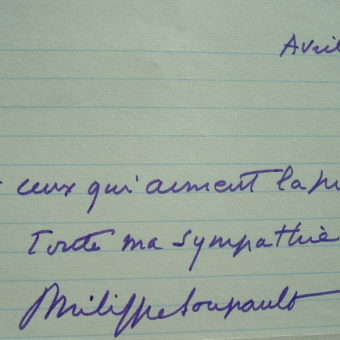 Avril
ceux qui aiment la
Toute ma sympathie
Philippe Soupault